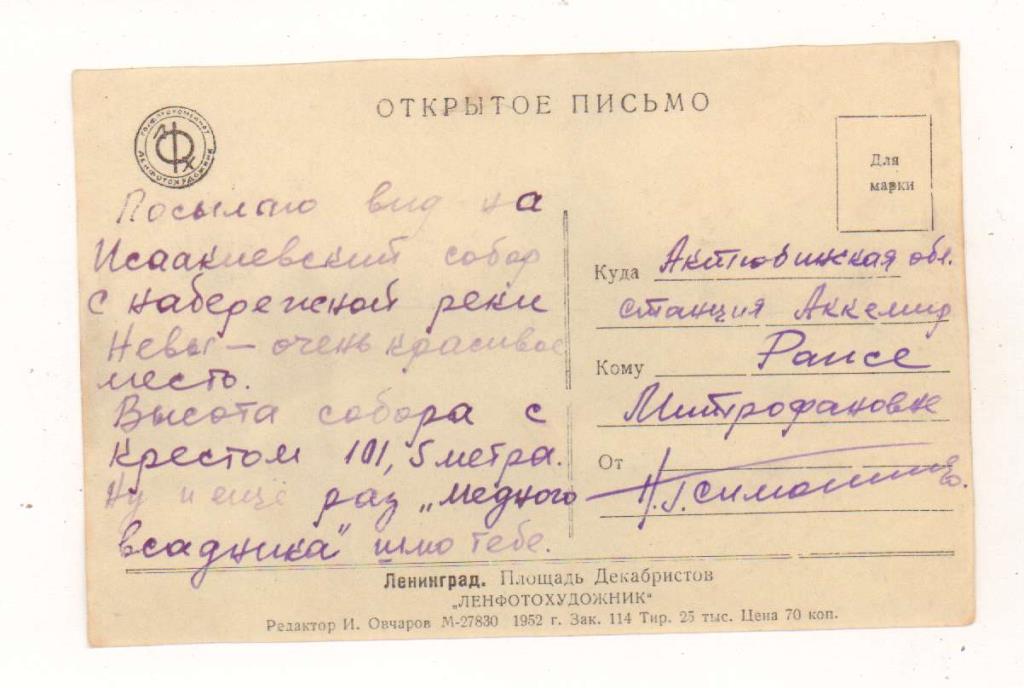 ОТКРЫТОЕ ПИСЬМО
ЛЕНФОТОХУДОЖНИК
ЛФХ
Для
марки
Посылаю вид на
Исаакиевский собор
с набережной реки
Невы — очень красивое
месть.
Высота собора с
крестом 101,5 метра.
Ну и ещё раз „Медного
всадника" шлю тебе.
Куда Актюбинская обл.
станция Аккемир
Кому Раисе
Митрофановне
От
Н.Г.
Ленинград. Площадь Декабристов
„ЛЕНФОТОХУДОЖНИК"
Редактор И. Овчаров М-27830 1952 г. Зак. 114 Тир. 25 тыс. Цена 70 коп.